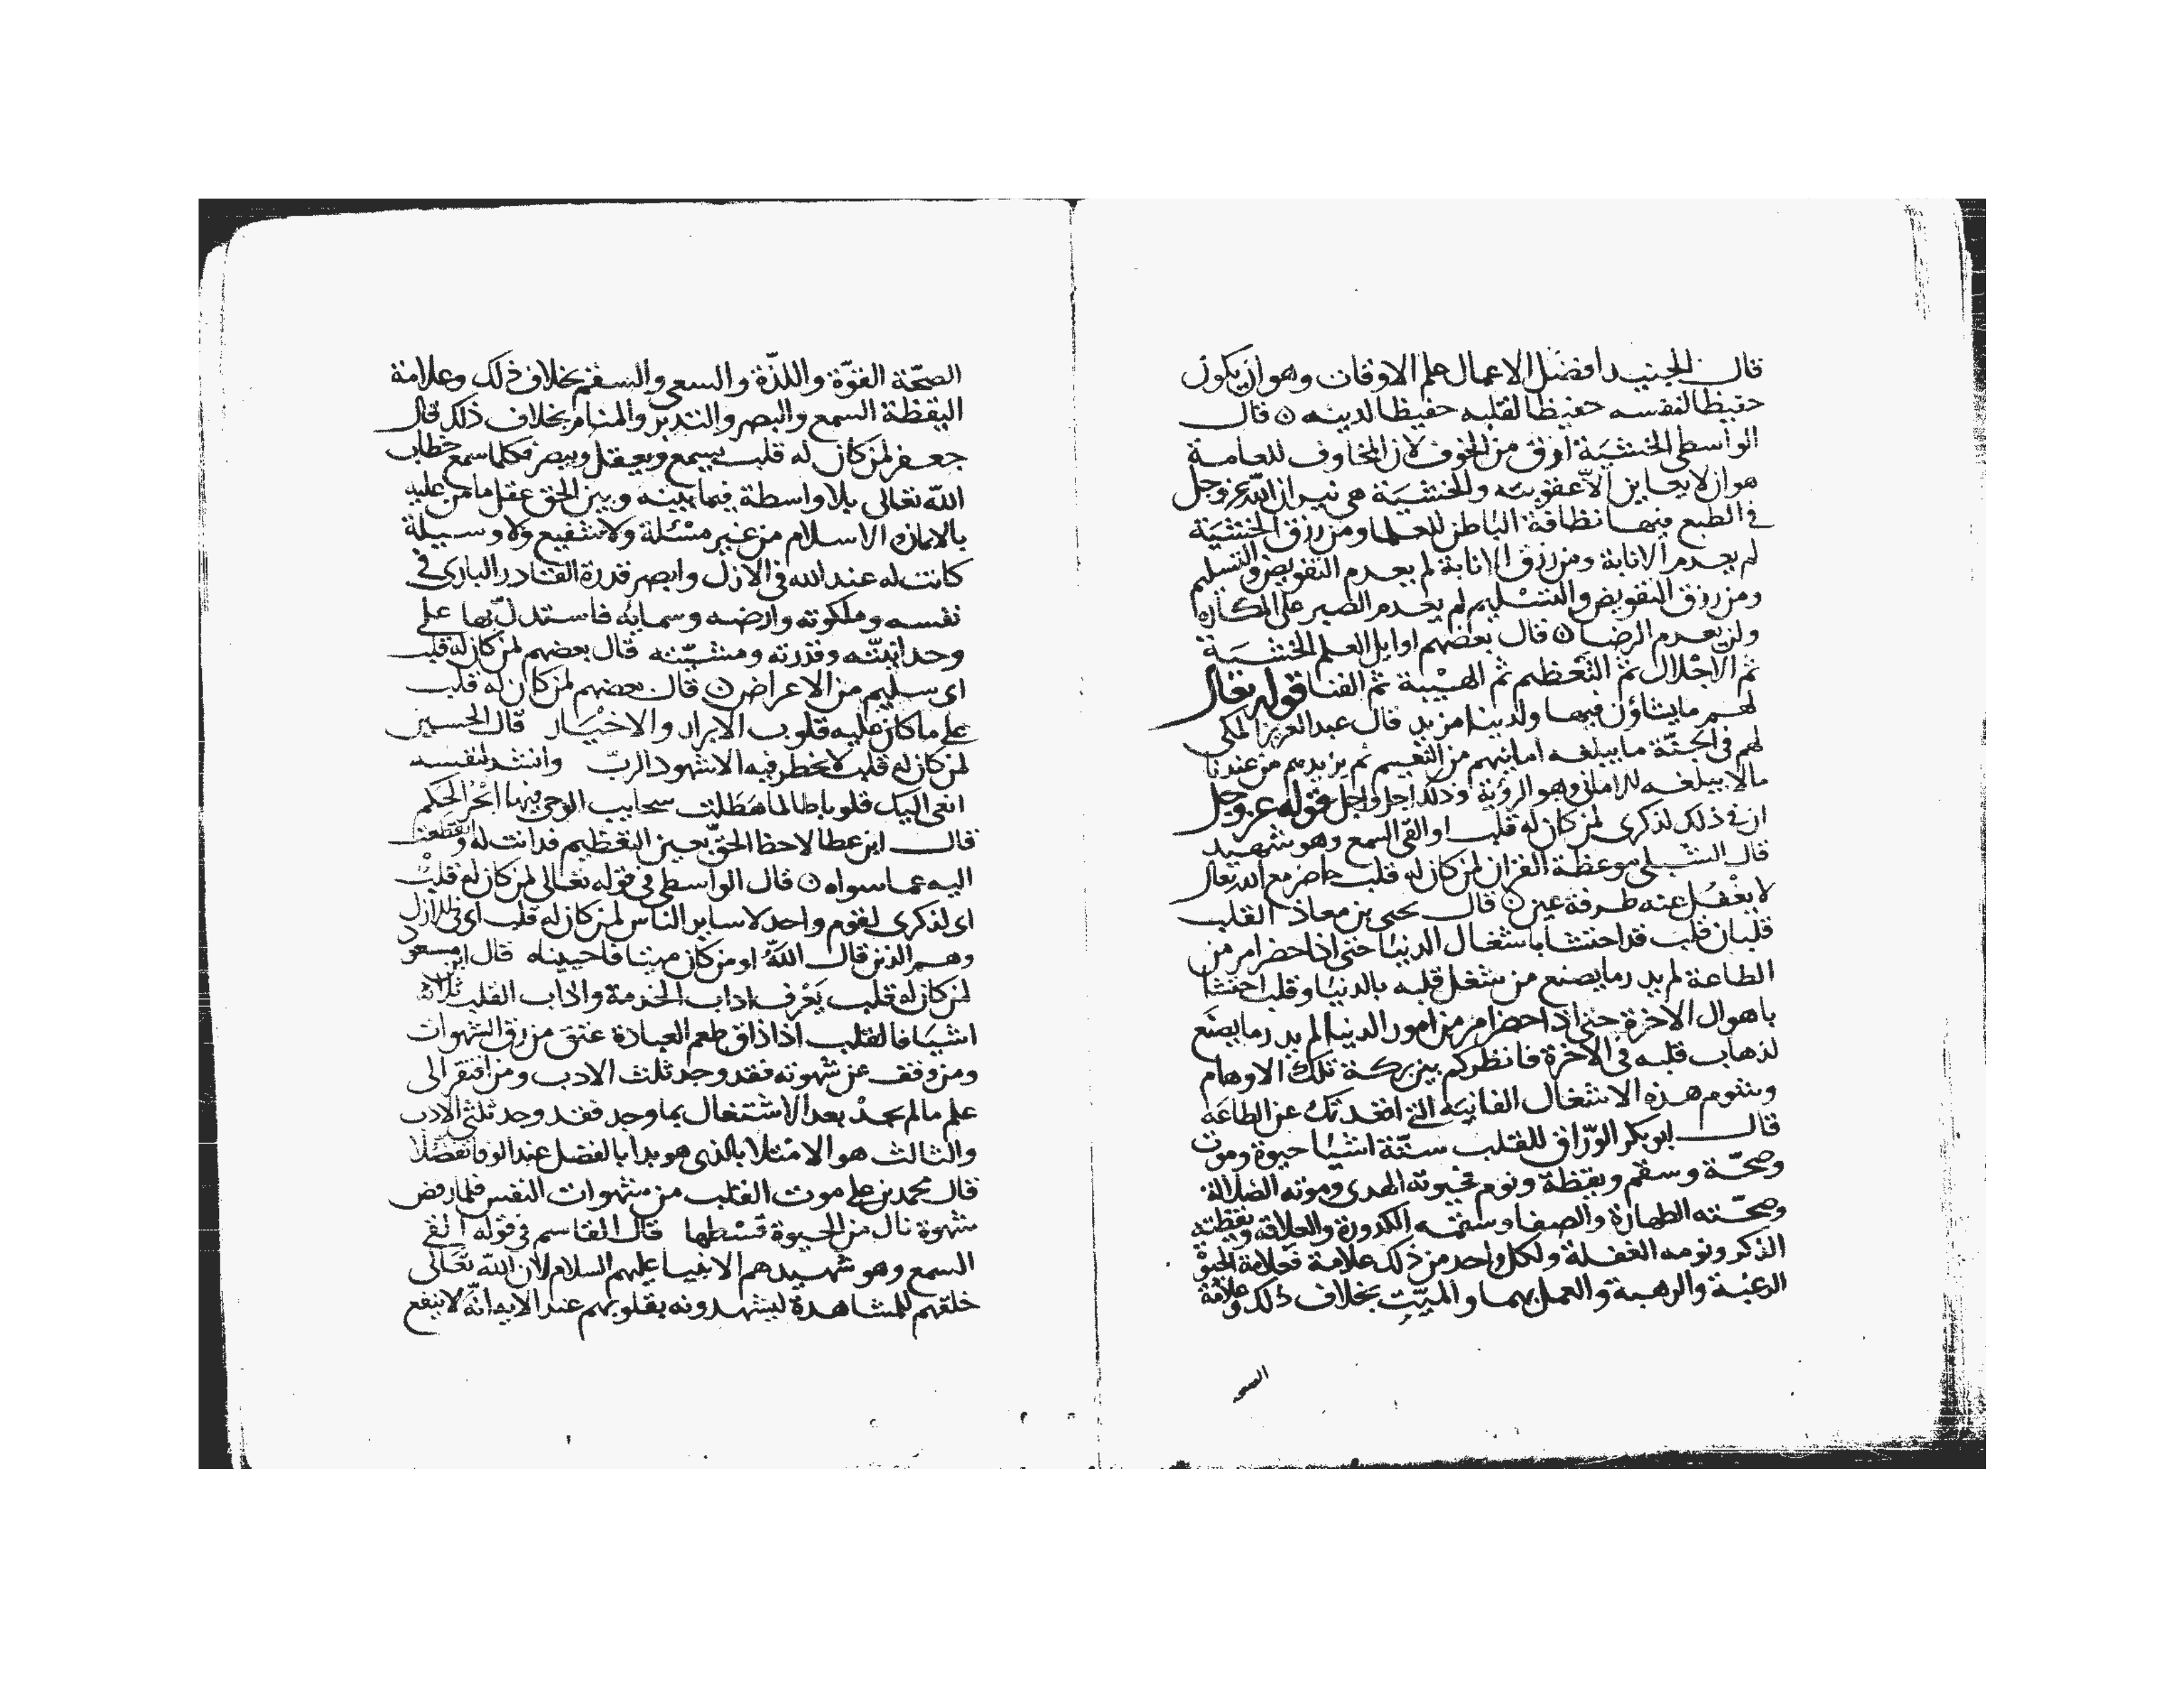 قال الجنيد افضل الاعمال علم الاوقات وهو ان يكون
حفيظا لنفسه حفيظا لقلبه حفيظا لدينه ن قال
الواسطى الخشية ارق من الخوف لان المخاوف للعامة
هو ان لا يعاين الا عقوبته والخشية هى نيران الله عز وجل
فى الطبع فيها نظافة الباطن للعلما ومن رزق الخشية
لم يعدم الانابة ومن رزق الانابة لم يعدم التفويض والتسليم
ومن رزق التفويض والتسليم لم يعدم الصبر على المكاره
ولن يعدم الرضا ن قال بعضهم اوايل العلم الخشية
ثم الاجلال ثم التعظيم ثم الهيبة ثم الفنا قوله تعالى
لهم ما يشاؤن فيها ولدينا مزيد قال عبد العزيز المكى
لهم فى الجنة ما يبلغه امانيهم من النعيم ثم يزيدهم من عندنا
مالا يبلغه الامانى وهو الرؤية وذلك اجل واجل قوله عز وجل
ان فى ذلك لذكرى لمن كان له قلب او القى السمع وهو شهيد
قال الشبلى موعظة القران لمن كان له قلب حاضر مع الله تعالى
لا يغفل عنه طرفة عين ن قال يحيى بن معاذ القلب
قلبان قلب قد احتشا باشغال الدنيا حتى اذا حضر امر من
الطاعة لم يدر ما يصنع من شغل قلبه بالدنيا وقلب احتشا
باهوال الاخرة حتى اذا حضر امر من امور الدنيا لم يدر ما يصنع
لذهاب قلبه فى الاخرة فانظر كم بين بركة تلك الاوهام
وشوم هذه الاشغال الفانية التى اقعدتك عن الطاعة
قال ابو بكر الوراق للقلب ستة اشيا حيوة وموت
وصحة وسقم ويقظة ونوم فحيوته الهدى وموته الضلالة
وصحته الطهارة والصفا وسقمه الكدورة والعلاقة ويقظته
الذكر ونومه الغفلة ولكل واحد من ذلك علامة فعلامة الحيوة
الرغبة والرهبة والعمل بهما والميت بخلاف ذلك وعلامة
الصحة القوة واللذة والسعى والسقم بخلاف ذلك وعلامة
اليقظة السمع والبصر والتدبر والمنام بخلاف ذلك قال
جعفر لمن كان له قلب يسمع ويعقل ويبصر فكلما سمع خطاب
الله تعالى بلا واسطة فيما بينه وبين الحق عقل ما من عليه
بالايمان والاسلام من غير مسئلة ولا شفيع ولا وسيلة
كانت له عند الله فى الازل وابصر قدرة القادر البارى فى
نفسه وملكوته وارضه وسمايه فاستدل بها على
وحدانيته وقدرته ومشيته قال بعضهم لمن كان له قلب
اى سليم من الاعراض ن قال بعضهم لمن كان له قلب
على ما كان عليه قلوب الابرار والاخيار قال الحسين
لمن كان له قلب لا يخطر فيه الا شهود الرب وانشد لنفسه
انعى اليك قلوبا طالما هطلت سحايب الوحى فيها ابحر الحكم
قال ابن عطا لاحظ الحق بعين التعظيم فدانت له وانقطعت
اليه عما سواه ن قال الواسطى فى قوله تعالى لمن كان له قلب
اى لذكرى لقوم واحد لا ساير الناس لمن كان له قلب اى فى الازل
وهم الذين قال الله او من كان ميتا فاحييناه قال ابن مسعود
لمن كان له قلب يعرف اداب الخدمة واداب القلب ثلاثة
اشيا فالقلب اذا ذاق طعم العبادة عتق من رق الشهوات
ومن وقف عن شهوته فقد وجد ثلث الادب ومن افتقر الى
علم ما لم يجد بعد الاشتغال بما وجد فقد وجد ثلثى الادب
والثالث هو الامتلا بالذى هو بدا بالفضل عند الوفا تفضلا
قال محمد بن على موت القلب من شهوات النفس فلما رفض
شهوة نال من الحيوة قسطها قال القاسم فى قوله القى
السمع وهو شهيد هم الانبيا عليهم السلام لان الله تعالى
خلقهم للمشاهدة ليشهدونه بقلوبهم عند الايه انه لا ينفع